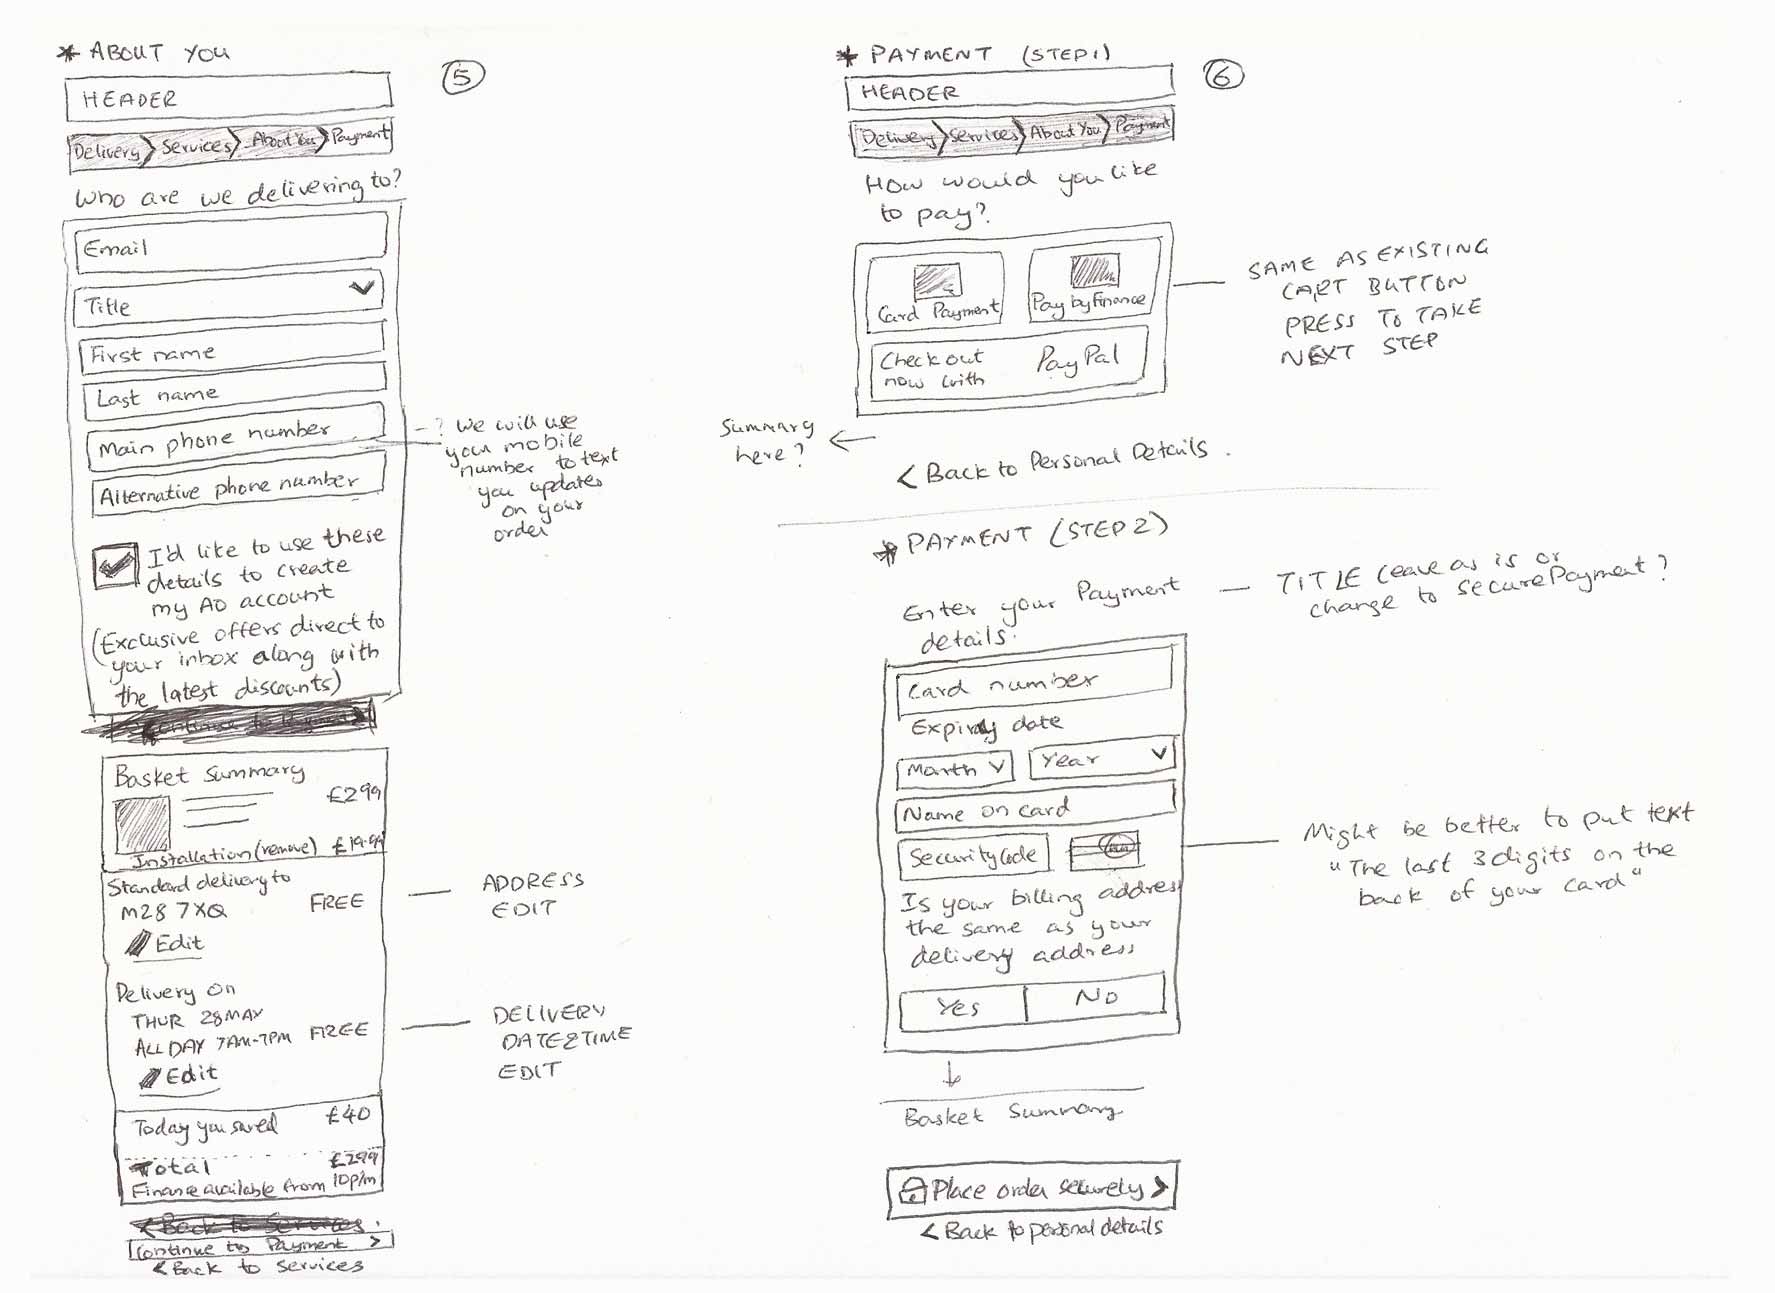 * ABOUT YOU
5
HEADER
Delivery > Services > About You > Payment
Who are we delivering to?
Email
Title
First name
Last name
Main phone number
Alternative phone number
? We will use
your mobile
number to text
you updates
on your
order
I'd like to use these
details to create
my AO account
(Exclusive offers direct to
your inbox along with
the latest discounts)
Continue to Payment >
Basket Summary
£299
Installation (remove) £19.99
Standard delivery to
M28 7XQ FREE
Edit
ADDRESS
EDIT
Delivery on
THUR 28 MAY
ALL DAY 7AM-7PM FREE
Edit
DELIVERY
DATE & TIME
EDIT
Today you saved £40
Total £299
Finance available from 10p/m
< Back to Services.
Continue to Payment >
< Back to Services
* PAYMENT (STEP 1)
6
HEADER
Delivery > Services > About You > Payment
How would you like
to pay?
Card Payment
Pay by Finance
Check out
now with PayPal
SAME AS EXISTING
CART BUTTON
PRESS TO TAKE
NEXT STEP
Summary
here?
< Back to Personal Details.
* PAYMENT (STEP 2)
Enter your Payment
details.
TITLE leave as is or
change to Secure Payment?
Card number
Expiry date
Month
Year
Name on card
Security Code
Might be better to put text
"The last 3 digits on the
back of your card"
Is your billing address
the same as your
delivery address
Yes
No
Basket Summary
Place order securely >
< Back to personal details